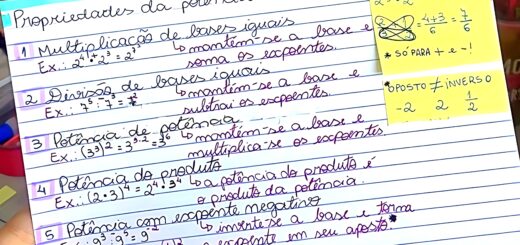 Propriedades da
1 Multiplicação de bases iguais
Ex.: 2⁴ · 2³ = 2⁷ ↳ mantém-se a base e
soma os expoentes.
2 Divisão de bases iguais
Ex.: 7⁵ : 7³ = ↳ mantém-se a base e
subtrai os expoentes.
3 Potência de potência
Ex.: (3³)² = 3³·² = 3⁶ ↳ mantém-se a base e
multiplica-se os expoentes.
4 Potência do produto
Ex.: (2·3)⁴ = 2⁴ · 3⁴ ↳ a potência do produto é
o produto da potência.
5 Potência com expoente negativo
↳ inverte-se a base e torna
o expoente em seu oposto
= 4+3/6 = 7/6
* SÓ PARA + e - !
*OPOSTO ≠ INVERSO
-2 2 1/2